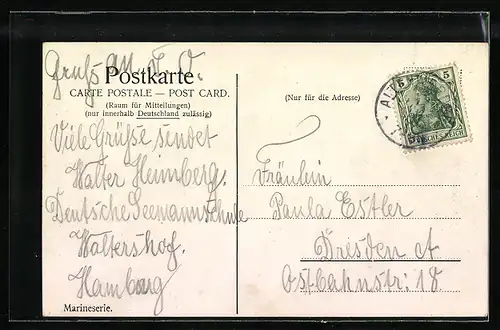 Gruß an F. O.
Postkarte
CARTE POSTALE — POST CARD.
(Raum für Mitteilungen)
(nur innerhalb Deutschland zulässig)
Viele Grüße sendet
Walter Heimberg.
Deutsche Seemannschule
Waltershof.
Hamburg
Marineserie.
(Nur für die Adresse)
5
DEUTSCHES REICH
Fräulein
Paula Estler
Dresden A
Ostbahnstr: 18.